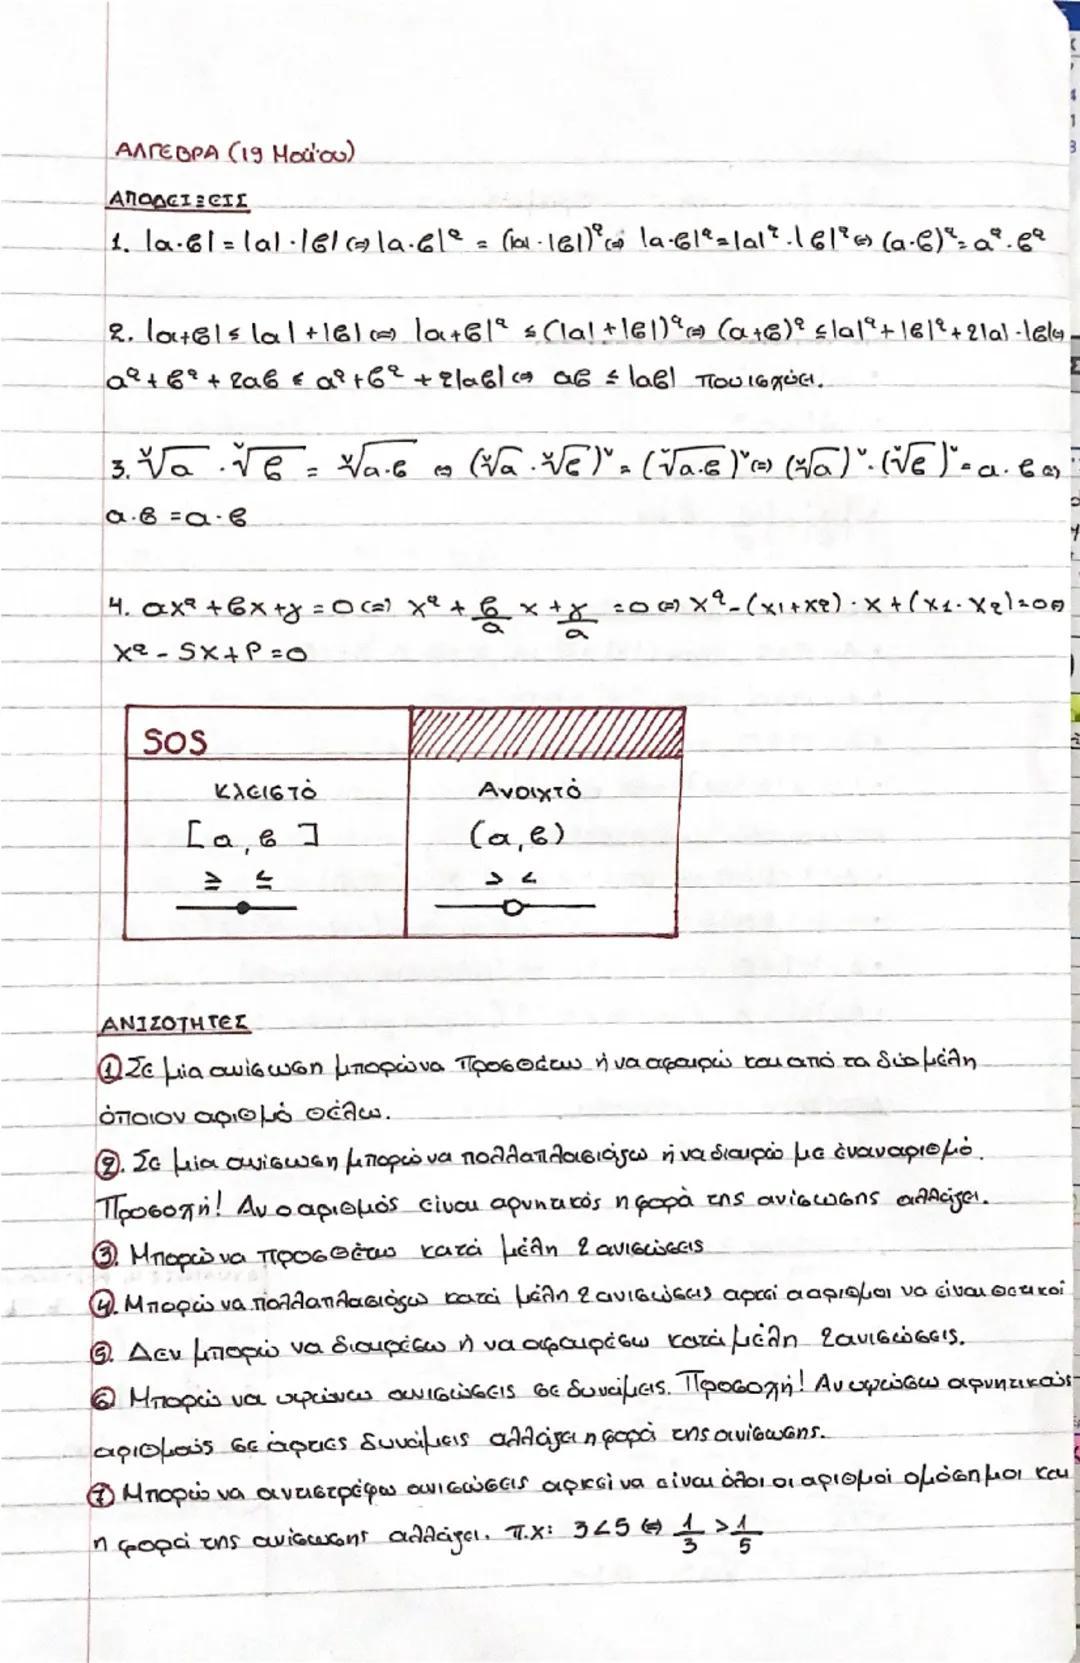 ΑΛΓΕΒΡΑ (19 Μαΐου)
ΑΠΟΔΕΙΞΕΙΣ
1. |α·β| = |α|·|β| ⇔ |α·β|² = (|α|·|β|)² ⇔ |α·β|² = |α|²·|β|² ⇔ (α·β)² = α²·β²
2. |α+β| ≤ |α|+|β| ⇔ |α+β|² ≤ (|α|+|β|)² ⇔ (α+β)² ≤ |α|²+|β|²+2|α|·|β| ⇔
α²+β²+2αβ ≤ α²+β²+2|αβ| ⇔ αβ ≤ |αβ| που ισχύει.
3. ᵛ√α · ᵛ√β = ᵛ√α·β ⇔ (ᵛ√α · ᵛ√β)ᵛ = (ᵛ√α·β)ᵛ ⇔ (ᵛ√α)ᵛ · (ᵛ√β)ᵛ = α·β ⇔
α·β = α·β
4. αx² + βx + γ = 0 ⇔ x² + β/α x + γ/α = 0 ⇔ x² - (x1+x2)·x + (x1·x2) = 0 ⇔
x² - Sx + P = 0
SOS
Κλειστό Ανοιχτό
[α, β] (α, β)
≥ ≤ > <
ΑΝΙΣΟΤΗΤΕΣ
① Σε μία ανίσωση μπορώ να προσθέσω ή να αφαιρώ και από τα δύο μέλη
όποιον αριθμό θέλω.
②. Σε μία ανίσωση μπορώ να πολλαπλασιάσω ή να διαιρώ με έναν αριθμό.
Προσοχή! Αν ο αριθμός είναι αρνητικός η φορά της ανίσωσης αλλάζει.
③. Μπορώ να προσθέτω κατά μέλη 2 ανισώσεις
④. Μπορώ να πολλαπλασιάσω κατά μέλη 2 ανισώσεις αρκεί α αριθμοι να είναι θετικοί
⑤. Δεν μπορώ να διαιρέσω ή να αφαιρέσω κατά μέλη 2 ανισώσεις.
⑥ Μπορώ να υψώνω ανισώσεις σε δυνάμεις. Προσοχή! Αν υψώσω αρνητικούς
αριθμούς σε άρτιες δυνάμεις αλλάζει η φορά της ανίσωσης.
⑦ Μπορώ να αντιστρέφω ανισώσεις αρκεί να είναι όλοι οι αριθμοί ομόσημοι και
η φορά της ανίσωσης αλλάζει. π.χ: 3<5 ⇔ 1/3 > 1/5